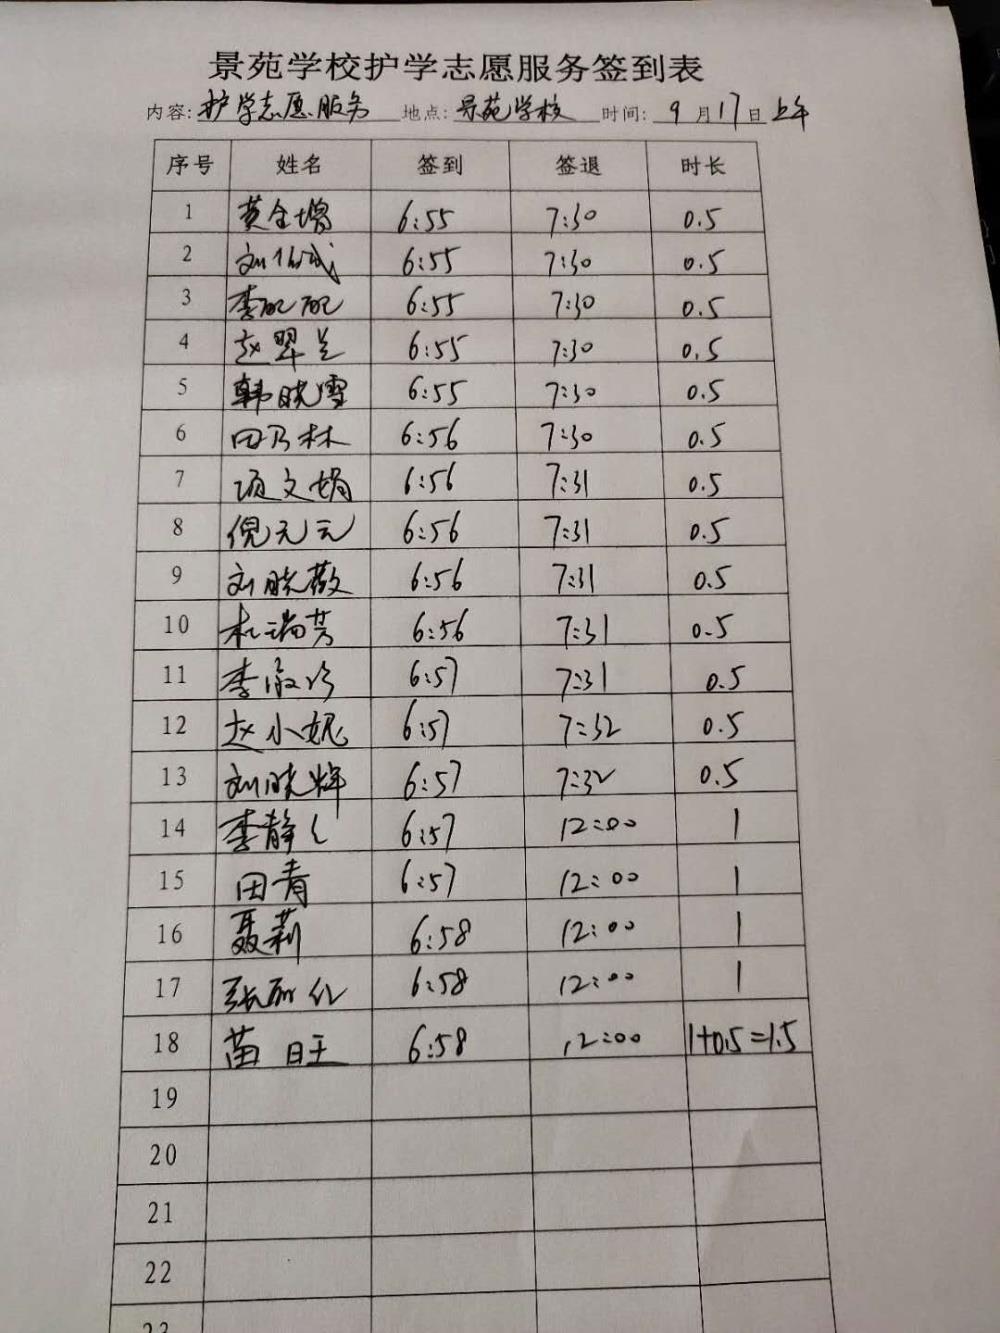 景苑学校护学志愿服务签到表
内容: 护学志愿服务 地点: 景苑学校 时间: 9月17日上午
序号 姓名 签到 签退 时长
1 黄全增 6:55 7:30 0.5
2 刘 6:55 7:30 0.5
3 李 6:55 7:30 0.5
4 赵翠兰 6:55 7:30 0.5
5 韩晓雪 6:55 7:30 0.5
6 田乃林 6:56 7:30 0.5
7 项文娟 6:56 7:31 0.5
8 倪元元 6:56 7:31 0.5
9 刘晓薇 6:56 7:31 0.5
10 杜瑞芳 6:56 7:31 0.5
11 李淑珍 6:57 7:31 0.5
12 赵小妮 6:57 7:32 0.5
13 刘晓辉 6:57 7:32 0.5
14 李静 6:57 12:00 1
15 田青 6:57 12:00 1
16 聂莉 6:58 12:00 1
17 张 6:58 12:00 1
18 苗旺 6:58 12:00 1+0.5=1.5
19
20
21
22
23